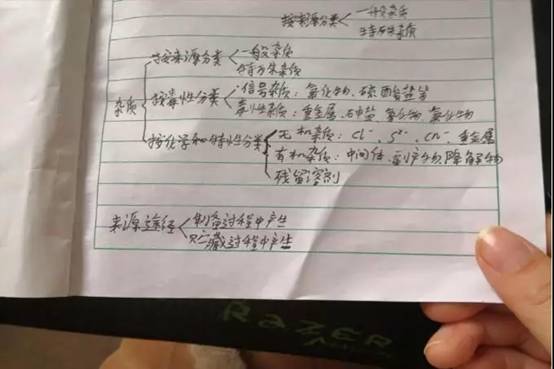 按来源分类 一般杂质
特殊杂质
杂质 按来源分类 一般杂质
特殊杂质
按毒性分类 信号杂质：氯化物、硫酸盐等
毒性杂质：重金属、砷盐、氰化物、氟化物
按化学和特性分类 无机杂质：Cl⁻、S²⁻、CN⁻、重金属
有机杂质：中间体、副产物、降解物
残留溶剂
来源途径 制备过程中产生
贮藏过程中产生
RAZER